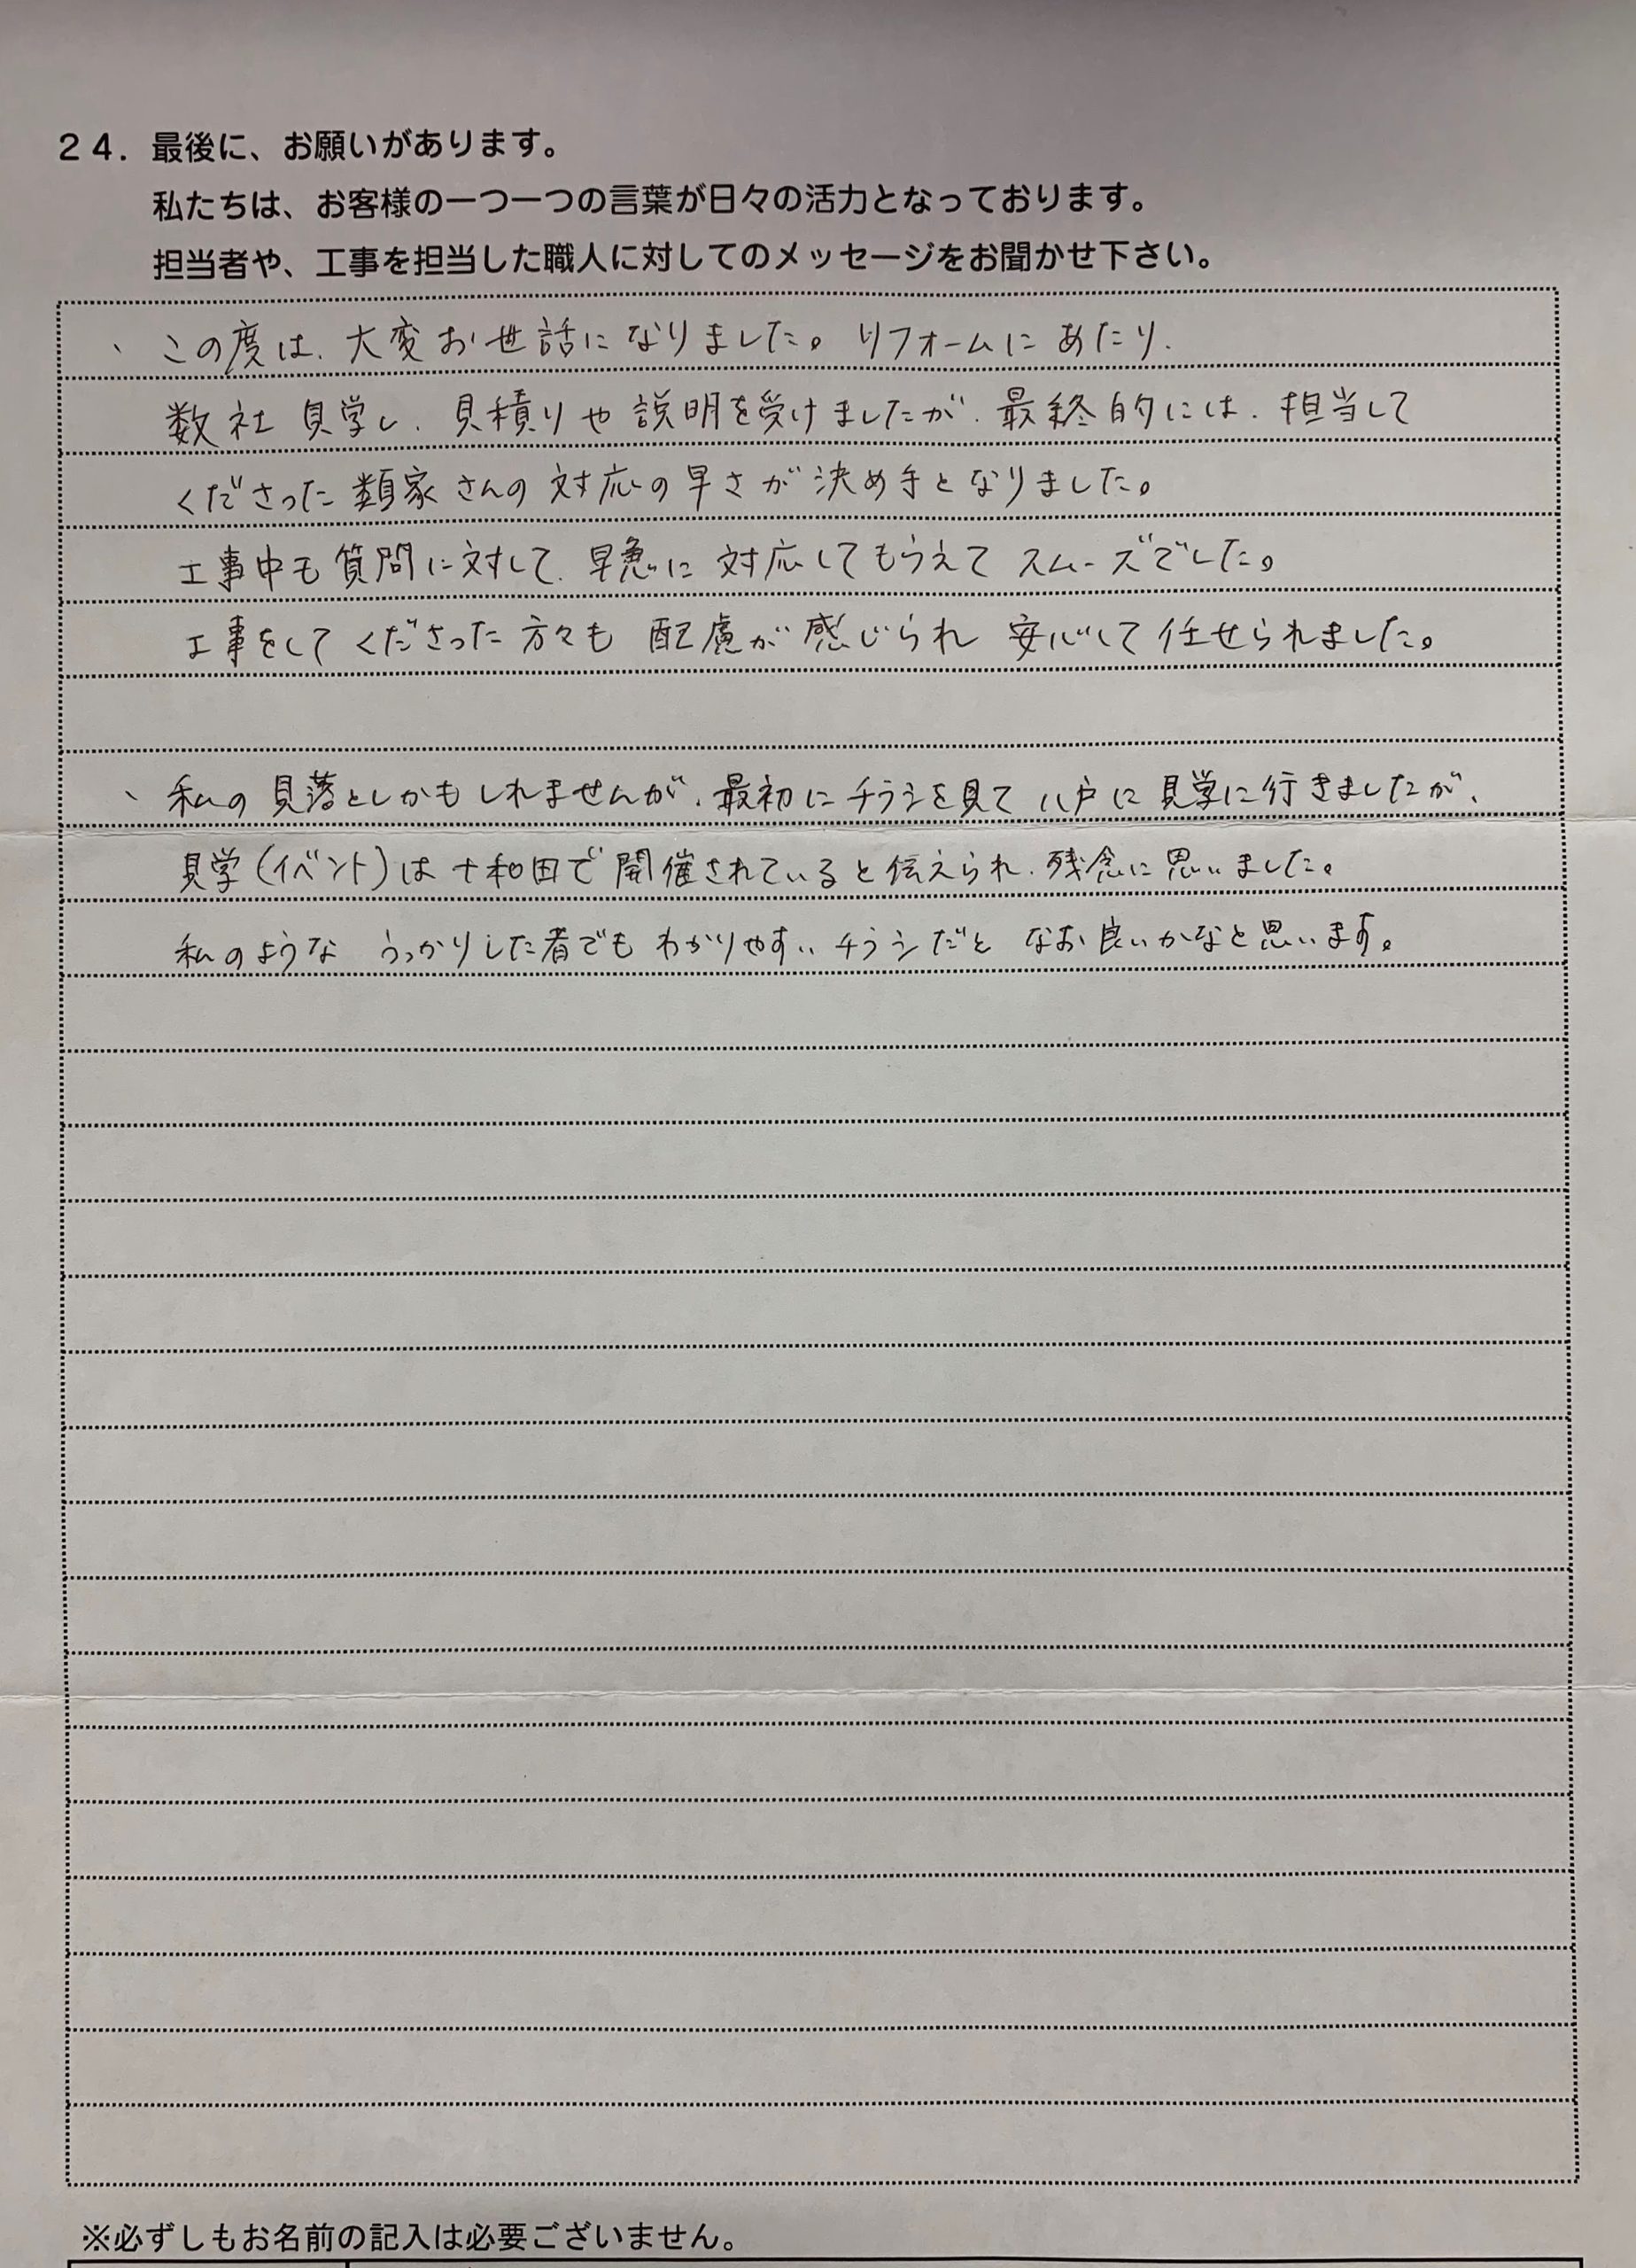 ２４．最後に、お願いがあります。
私たちは、お客様の一つ一つの言葉が日々の活力となっております。
担当者や、工事を担当した職人に対してのメッセージをお聞かせ下さい。
、この度は、大変お世話になりました。リフォームにあたり、
数社見学し、見積りや説明を受けましたが、最終的には、担当して
くださった類家さんの対応の早さが決め手となりました。
工事中も質問に対して、早急に対応してもらえてスムーズでした。
工事をしてくださった方々も配慮が感じられ安心して任せられました。
、私の見落としかもしれませんが、最初にチラシを見て八戸に見学に行きましたが、
見学（イベント）は十和田で開催されていると伝えられ、残念に思いました。
私のような うっかりした者でもわかりやすいチラシだと なお良いかなと思います。
※必ずしもお名前の記入は必要ございません。